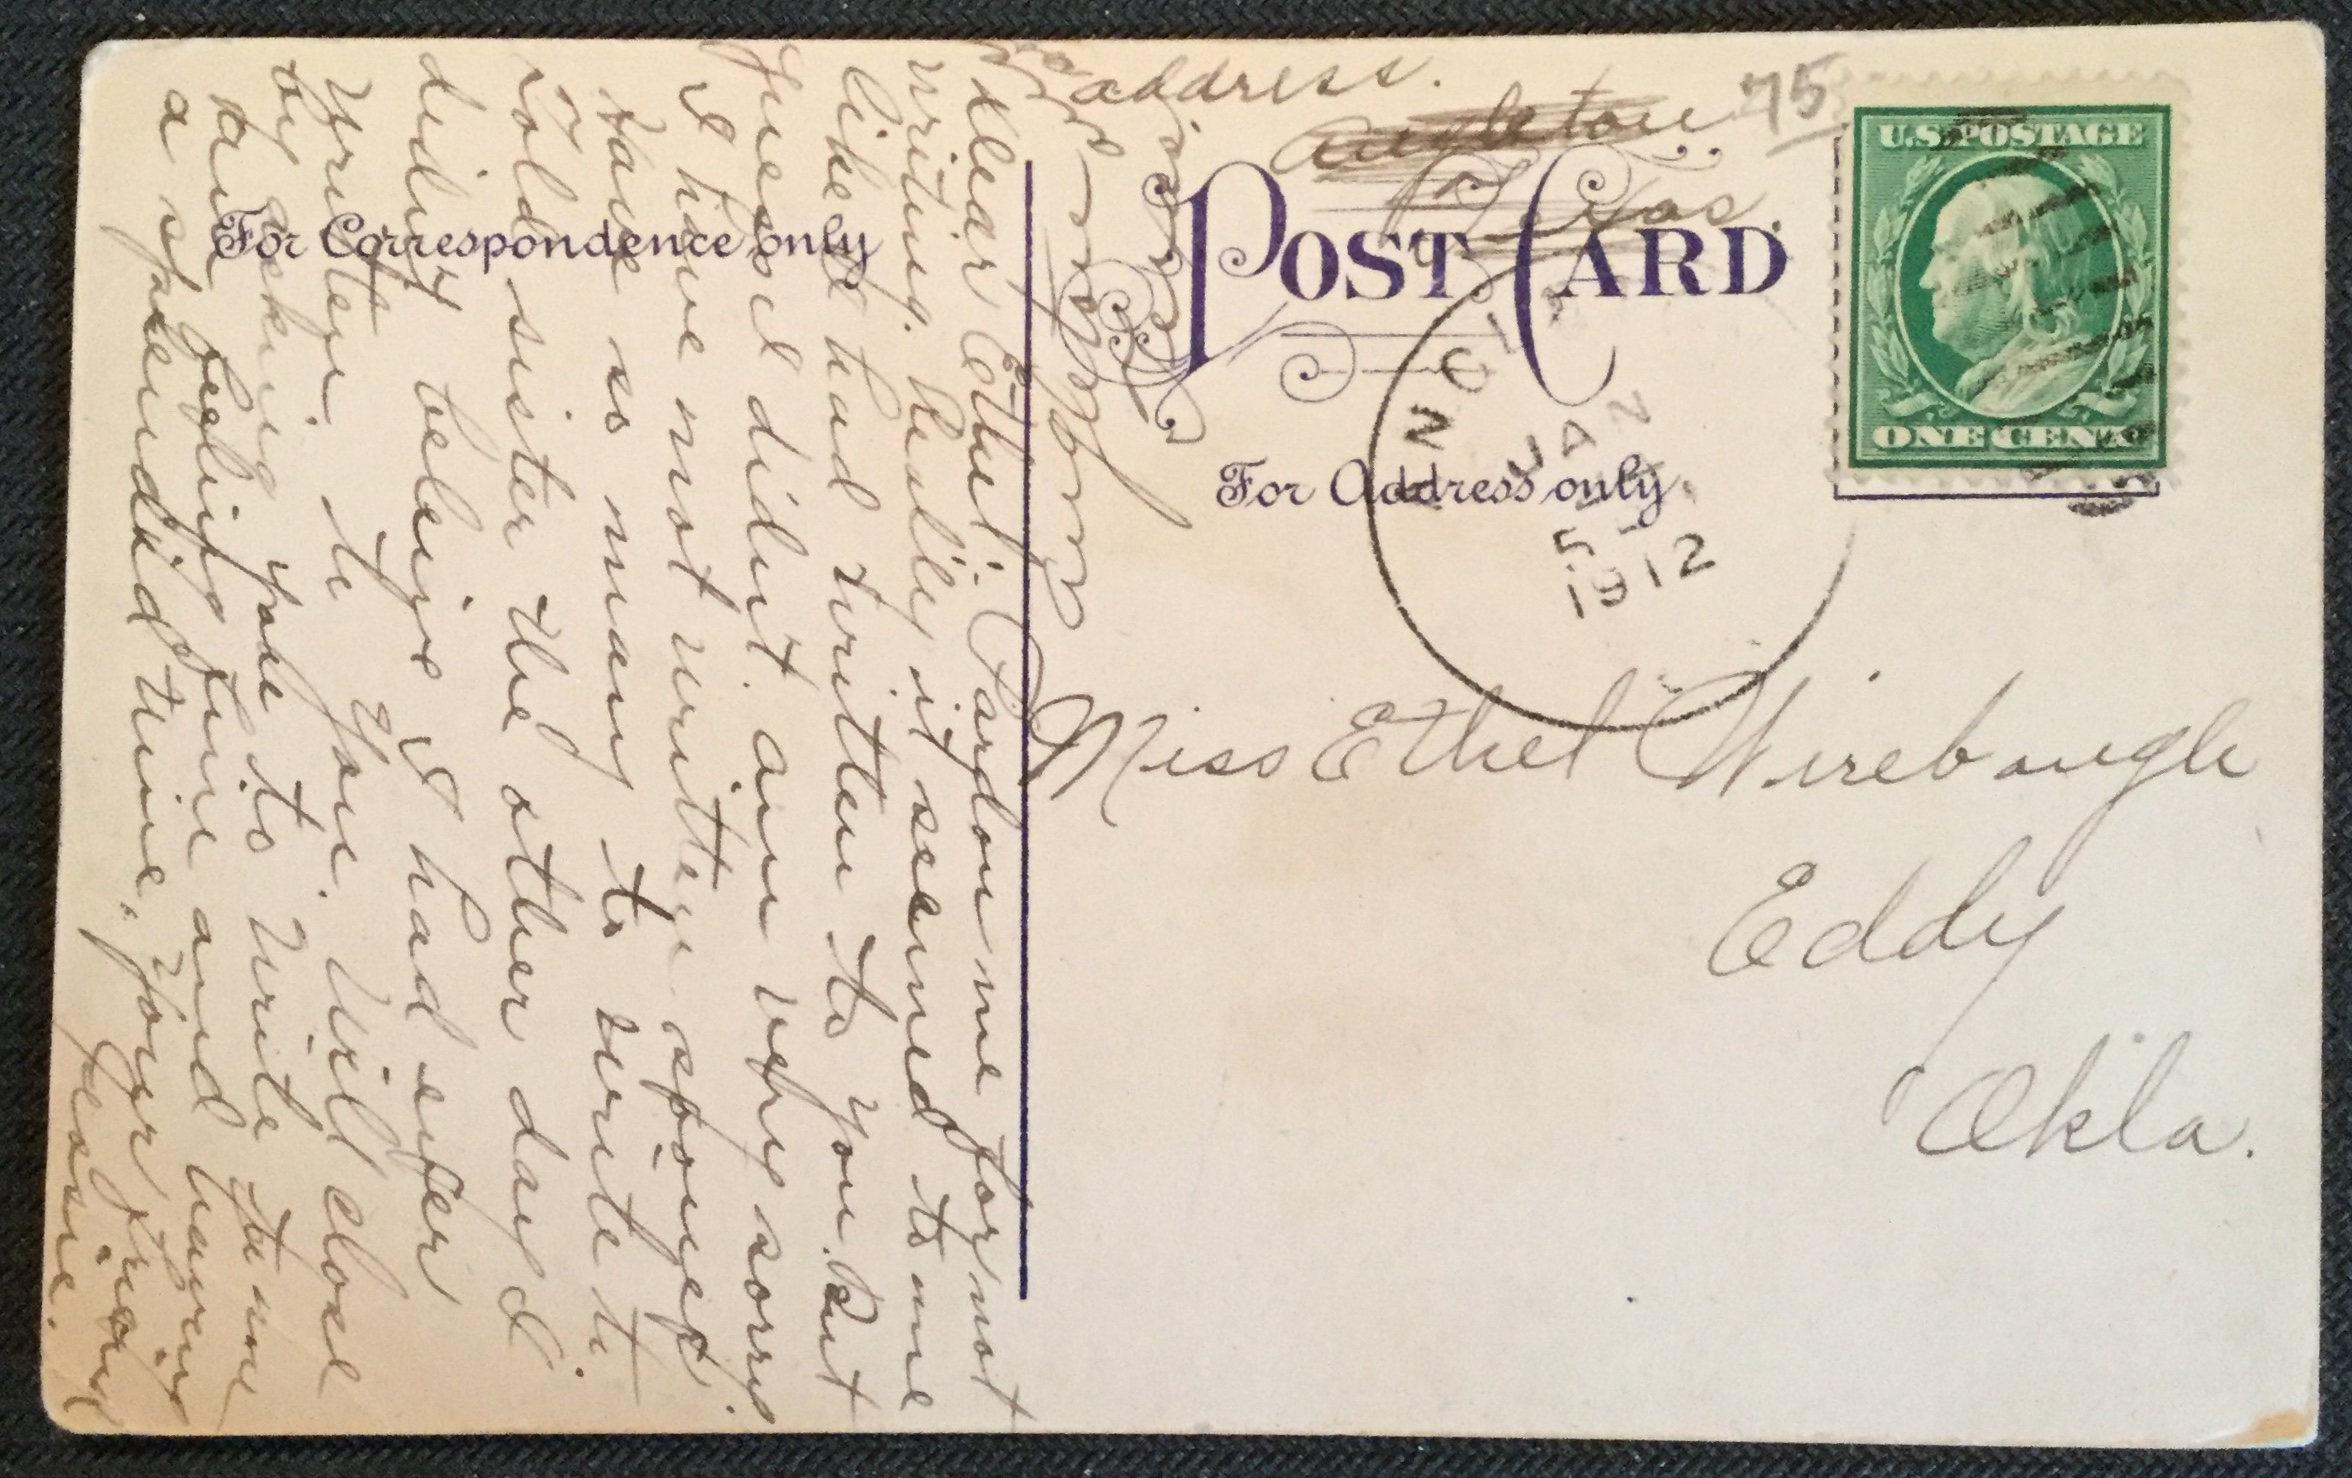 address.
Angleton
Texas.
75
U.S. POSTAGE
ONE CENT
POST CARD
For Correspondence only
For Address only
JAN
5
1912
Miss Ethel Wirebaugh
Eddy
Okla.
Dear Ethel:- Pardon me for not
writing. Really it seemed to me
like I had written to you. But
guess I didn't. am very sorry
I have not written sooner
have so many to write to
told sister the other day I
didn't believe I had ever
written to you. Will close
by asking you to write to me
am feeling fine and having
a splendid time. Your friend
Jessie.